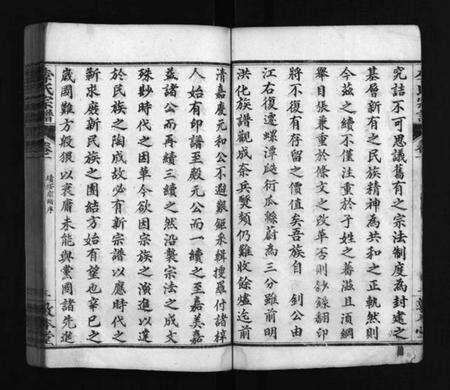 究詰不可思議舊有之宗法制度為封建之
基層新有之民族精神為共和之正軌然則
今茲之續不僅注重於子姓之蕃滋且須網
舉目張兼重於條文之改革否則鈔錄翻印
將不復有存留之價值矣吾族自 釗公由
江右復遷螺潭瓞衍瓜緜蔚為三分雖前明
洪化族譜觀成奈兵燹頻仍難收餘燼迨前
清嘉慶元和公不避艱鉅釆輯搜羅付諸梓
人始有印譜至殿元公而一續之至嘉美嘉
益諸公而再續三續之然沿襲宗法之成文
殊妙時代之因革今欲因宗族之演進以達
於民族之陶成故必有新宗譜以應時代之
新求廢新民族之團結方始有望也辛巳之
歲國難方殷猥以衰庸未能與黨國諸先進
李氏宗譜
卷一
續修宗譜序
敦本堂